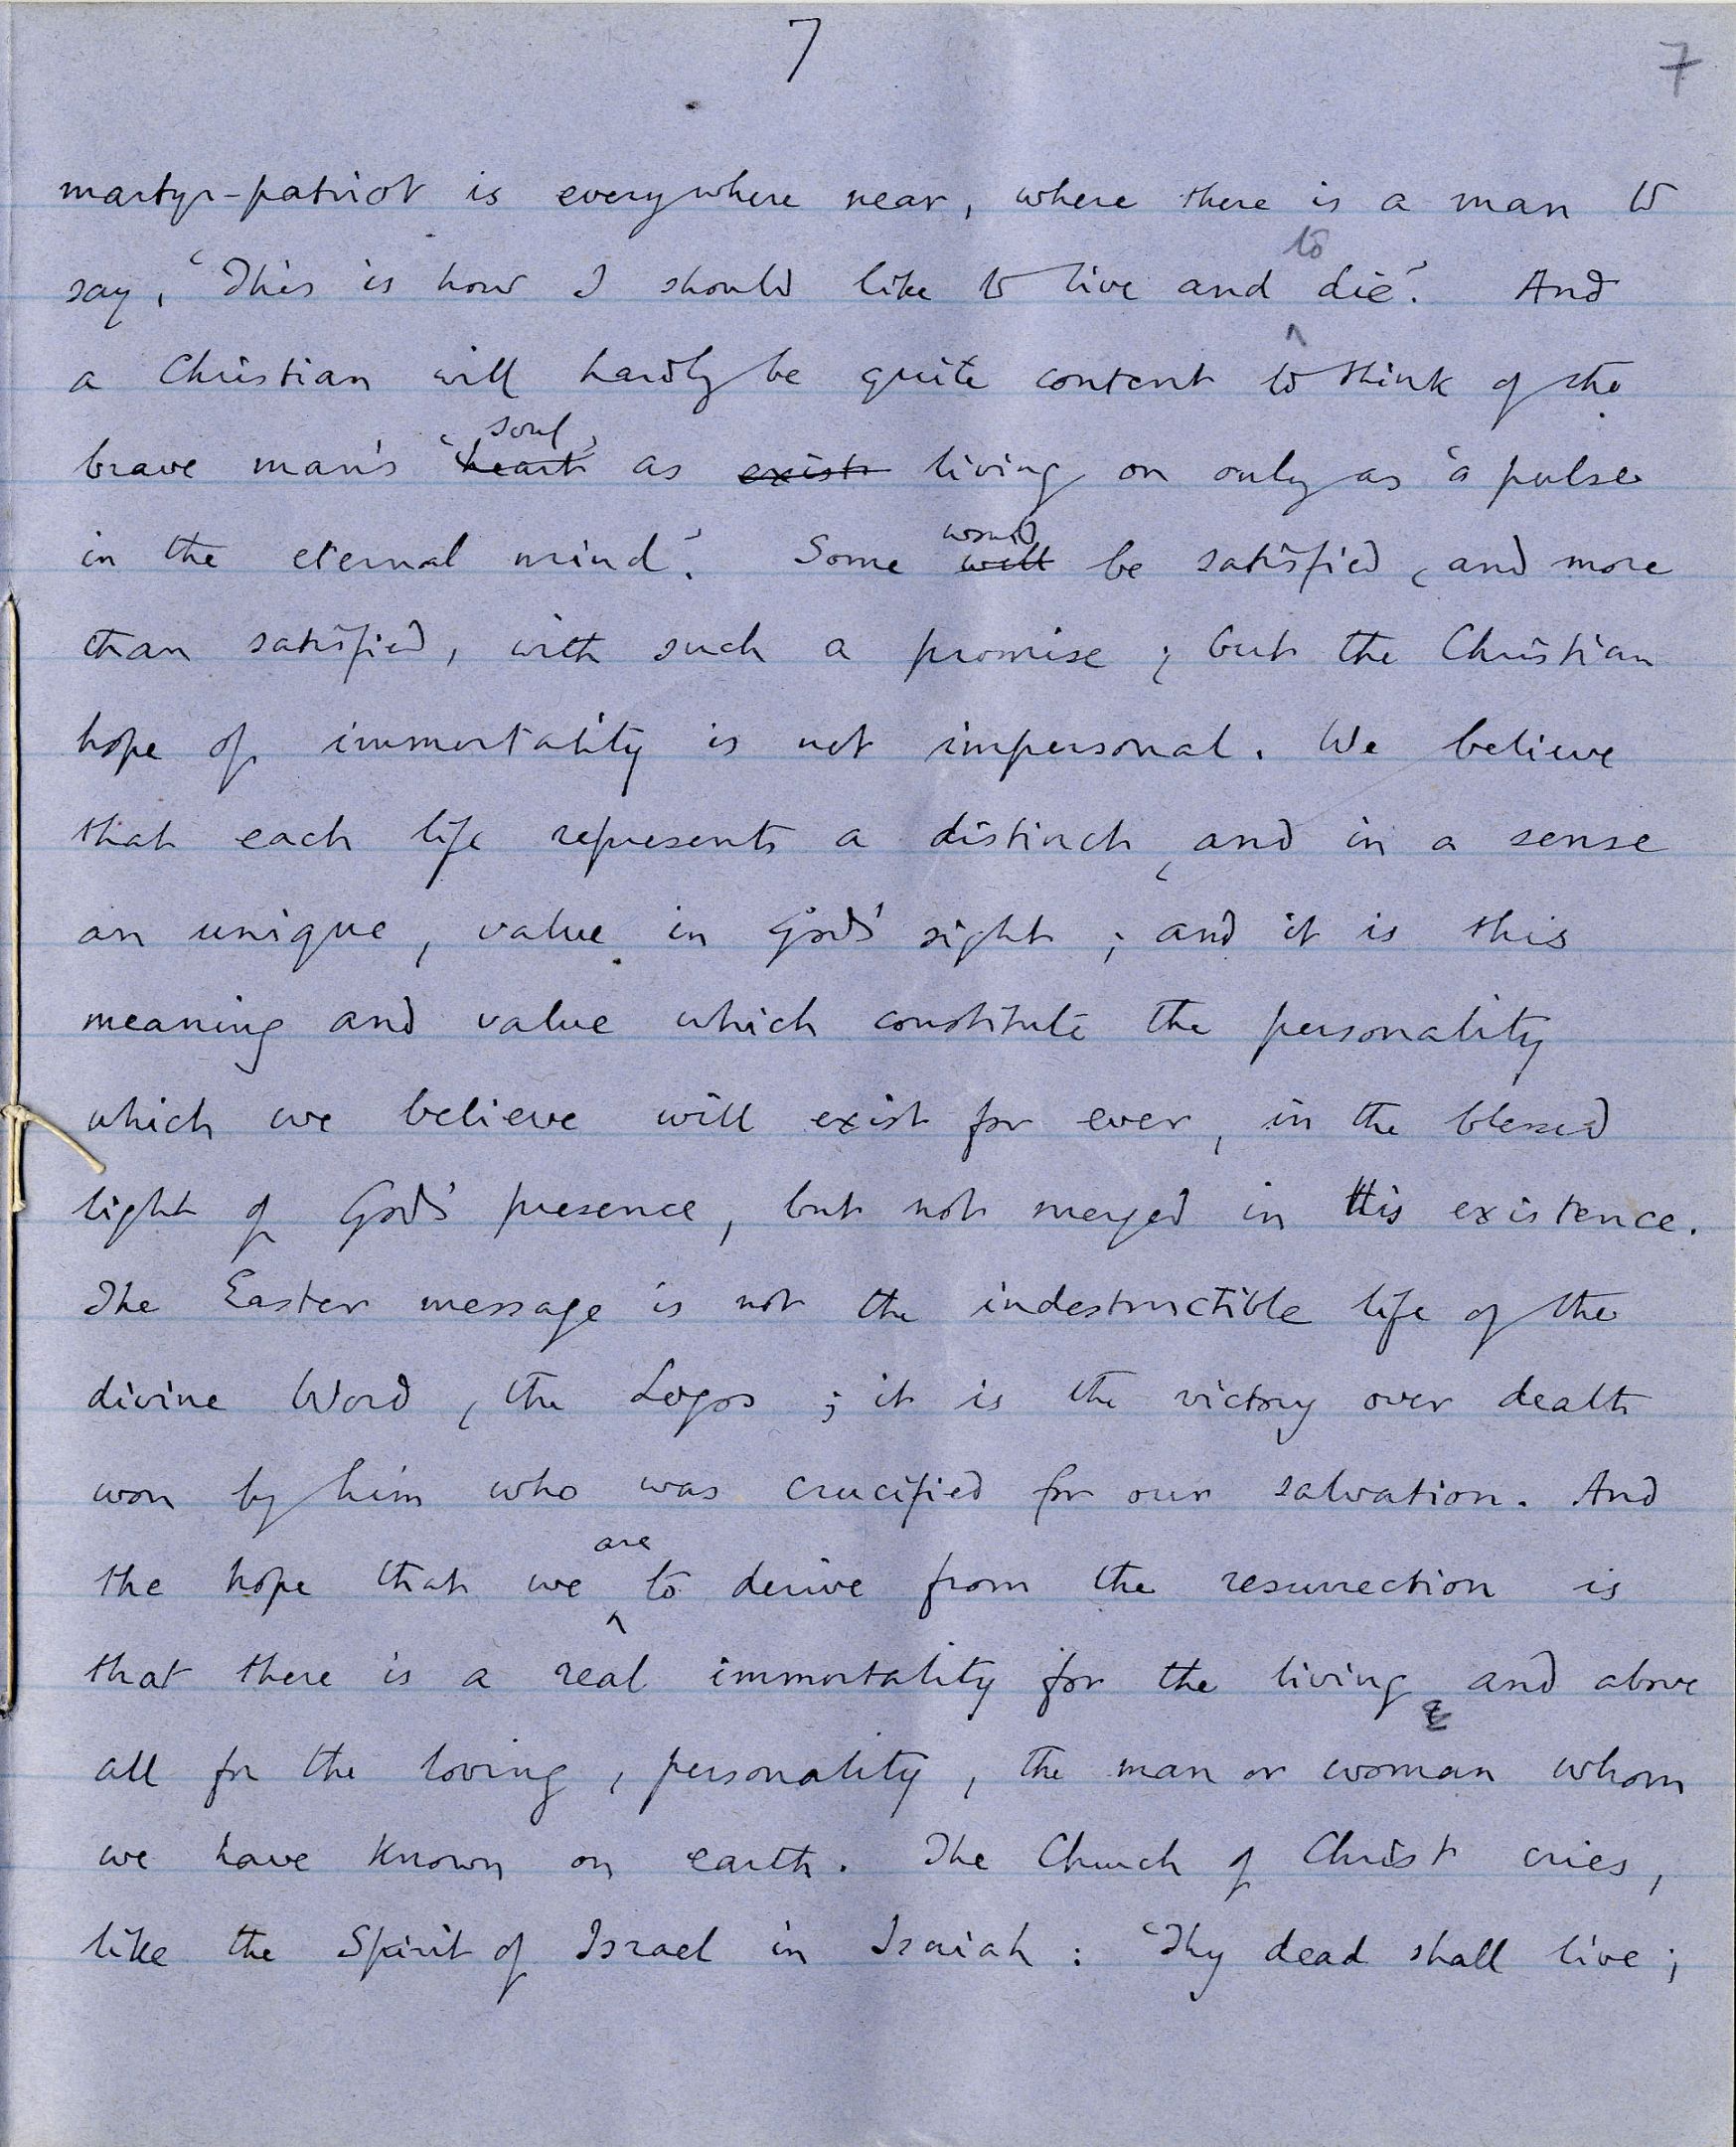 7
7
martyr-patriot is everywhere near, where there is a man to
to
say, 'This is how I should like to live and die'. And
^
a Christian will hardly be quite content to think of the
soul
brave man's 'heart' as exist living on only as 'a pulse
would
in the eternal mind'. Some will be satisfied, and more
than satisfied, with such a promise; but the Christian
hope of immortality is not impersonal. We believe
that each life represents a distinct, and in a sense
an unique, value in God's sight; and it is this
meaning and value which constitute the personality
which we believe will exist for ever, in the blessed
light of God's presence, but not merged in His existence.
The Easter message is not the indestructible life of the
divine Word, the Logos; it is the victory over death
won by him who was crucified for our salvation. And
are
the hope that we to derive from the resurrection is
^
that there is a real immortality for the living, and above
all for the loving, personality, the man or woman whom
we have known on earth. The Church of Christ cries,
like the Spirit of Israel in Isaiah: 'Thy dead shall live;